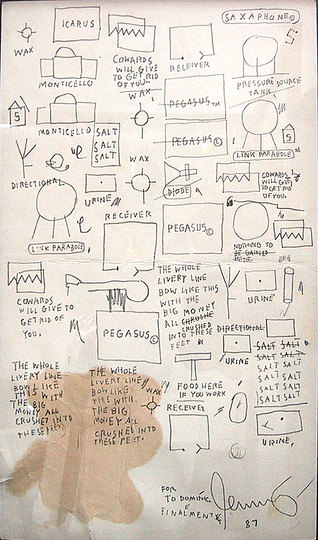 ICARUS
WAX
COWARDS
WILL GIVE
TO GET RID
OF YOU
RELEIVER
SAXAPHONE©
5
MONTICELLO
WAX
PRESSURE SOURCE
TANK
PEGASUS™
S
MONTICELLO
SALT
SALT
SALT
PEGASUS©
LINK PARABOLE™
WAX
DIRECTIONAL
DIODE
COWARDS
WILL GIVE
TO GET RID
OF YOU.
URINE
RECEIVER
PEGASUS©
LINK PARABOLE
NOTHING TO
BE GAINED
HERE
COWARDS
WILL GIVE TO
GET RID OF
YOU.
THE WHOLE
LIVERY LINE
BOW LIKE THIS
WITH THE
BIG MONEY
ALL CRUSHED
CRUSHED
INTO THESE
FEET
URINE
PEGASUS©
DIRECTIONAL
URINE
SALT SALT
SALT SALT
SALT SALT
SALT SALT
SALT SALT
SALT SALT
THE WHOLE
LIVERY LINE
BOW LIKE
THIS WITH
THE BIG
MONEY ALL
CRUSHED INTO
THESE FEET
THE WHOLE
LIVERY LINE
BOW LIKE
THIS WITH
THE BIG
MONEY ALL
CRUSHED INTO
THESE FEET.
WAX
FOOD HERE
IF YOU WORK
RECEIVER
URINE
FOR
TO DOMINIK
FINALMENTE
87